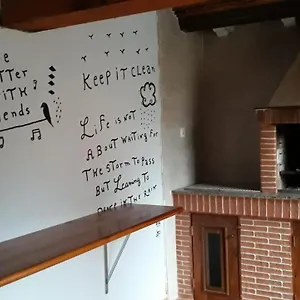 TTER
WITH
friends
KEEP iT CLEAN
LiFe is NOT
ABOUT WAiTiNG FOR
THE STORM TO PASS
BUT LEARNiNG TO
DANCE iN THE RAiN